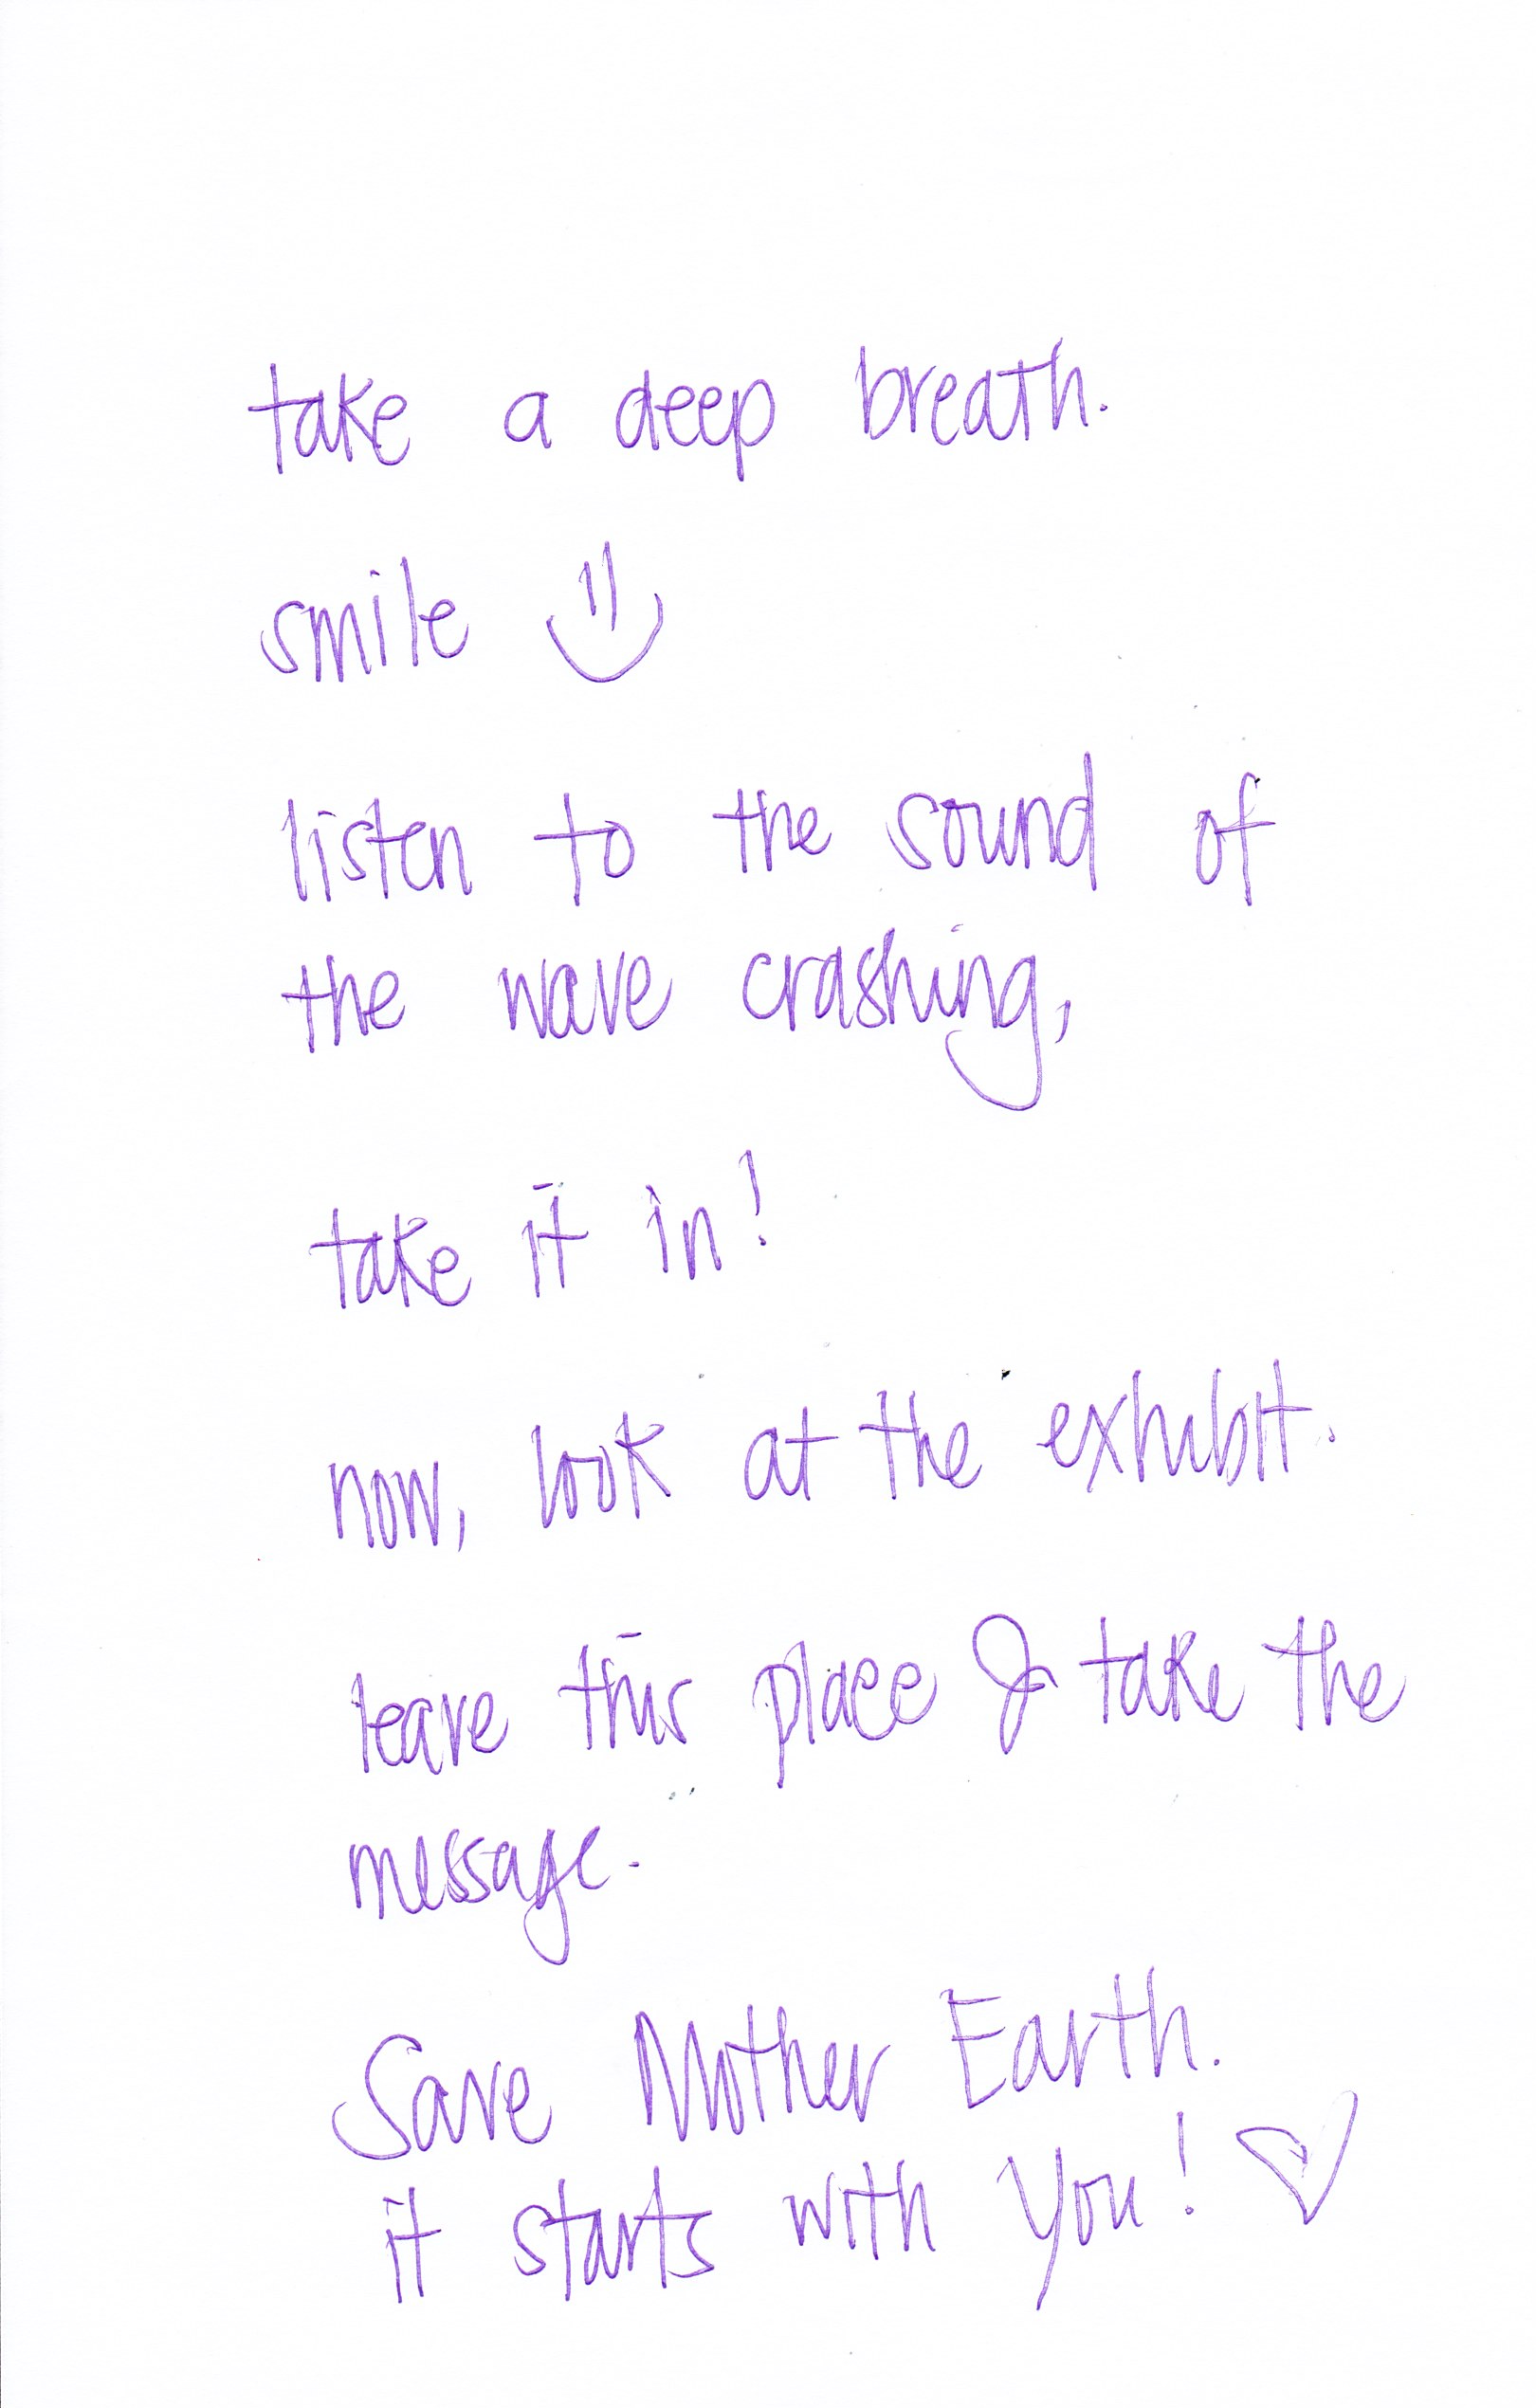 take a deep breath.
smile
listen to the sound of
the wave crashing,
take it in!
now, look at the exhibit.
leave this place & take the
message.
Save Mother Earth.
it starts with you!